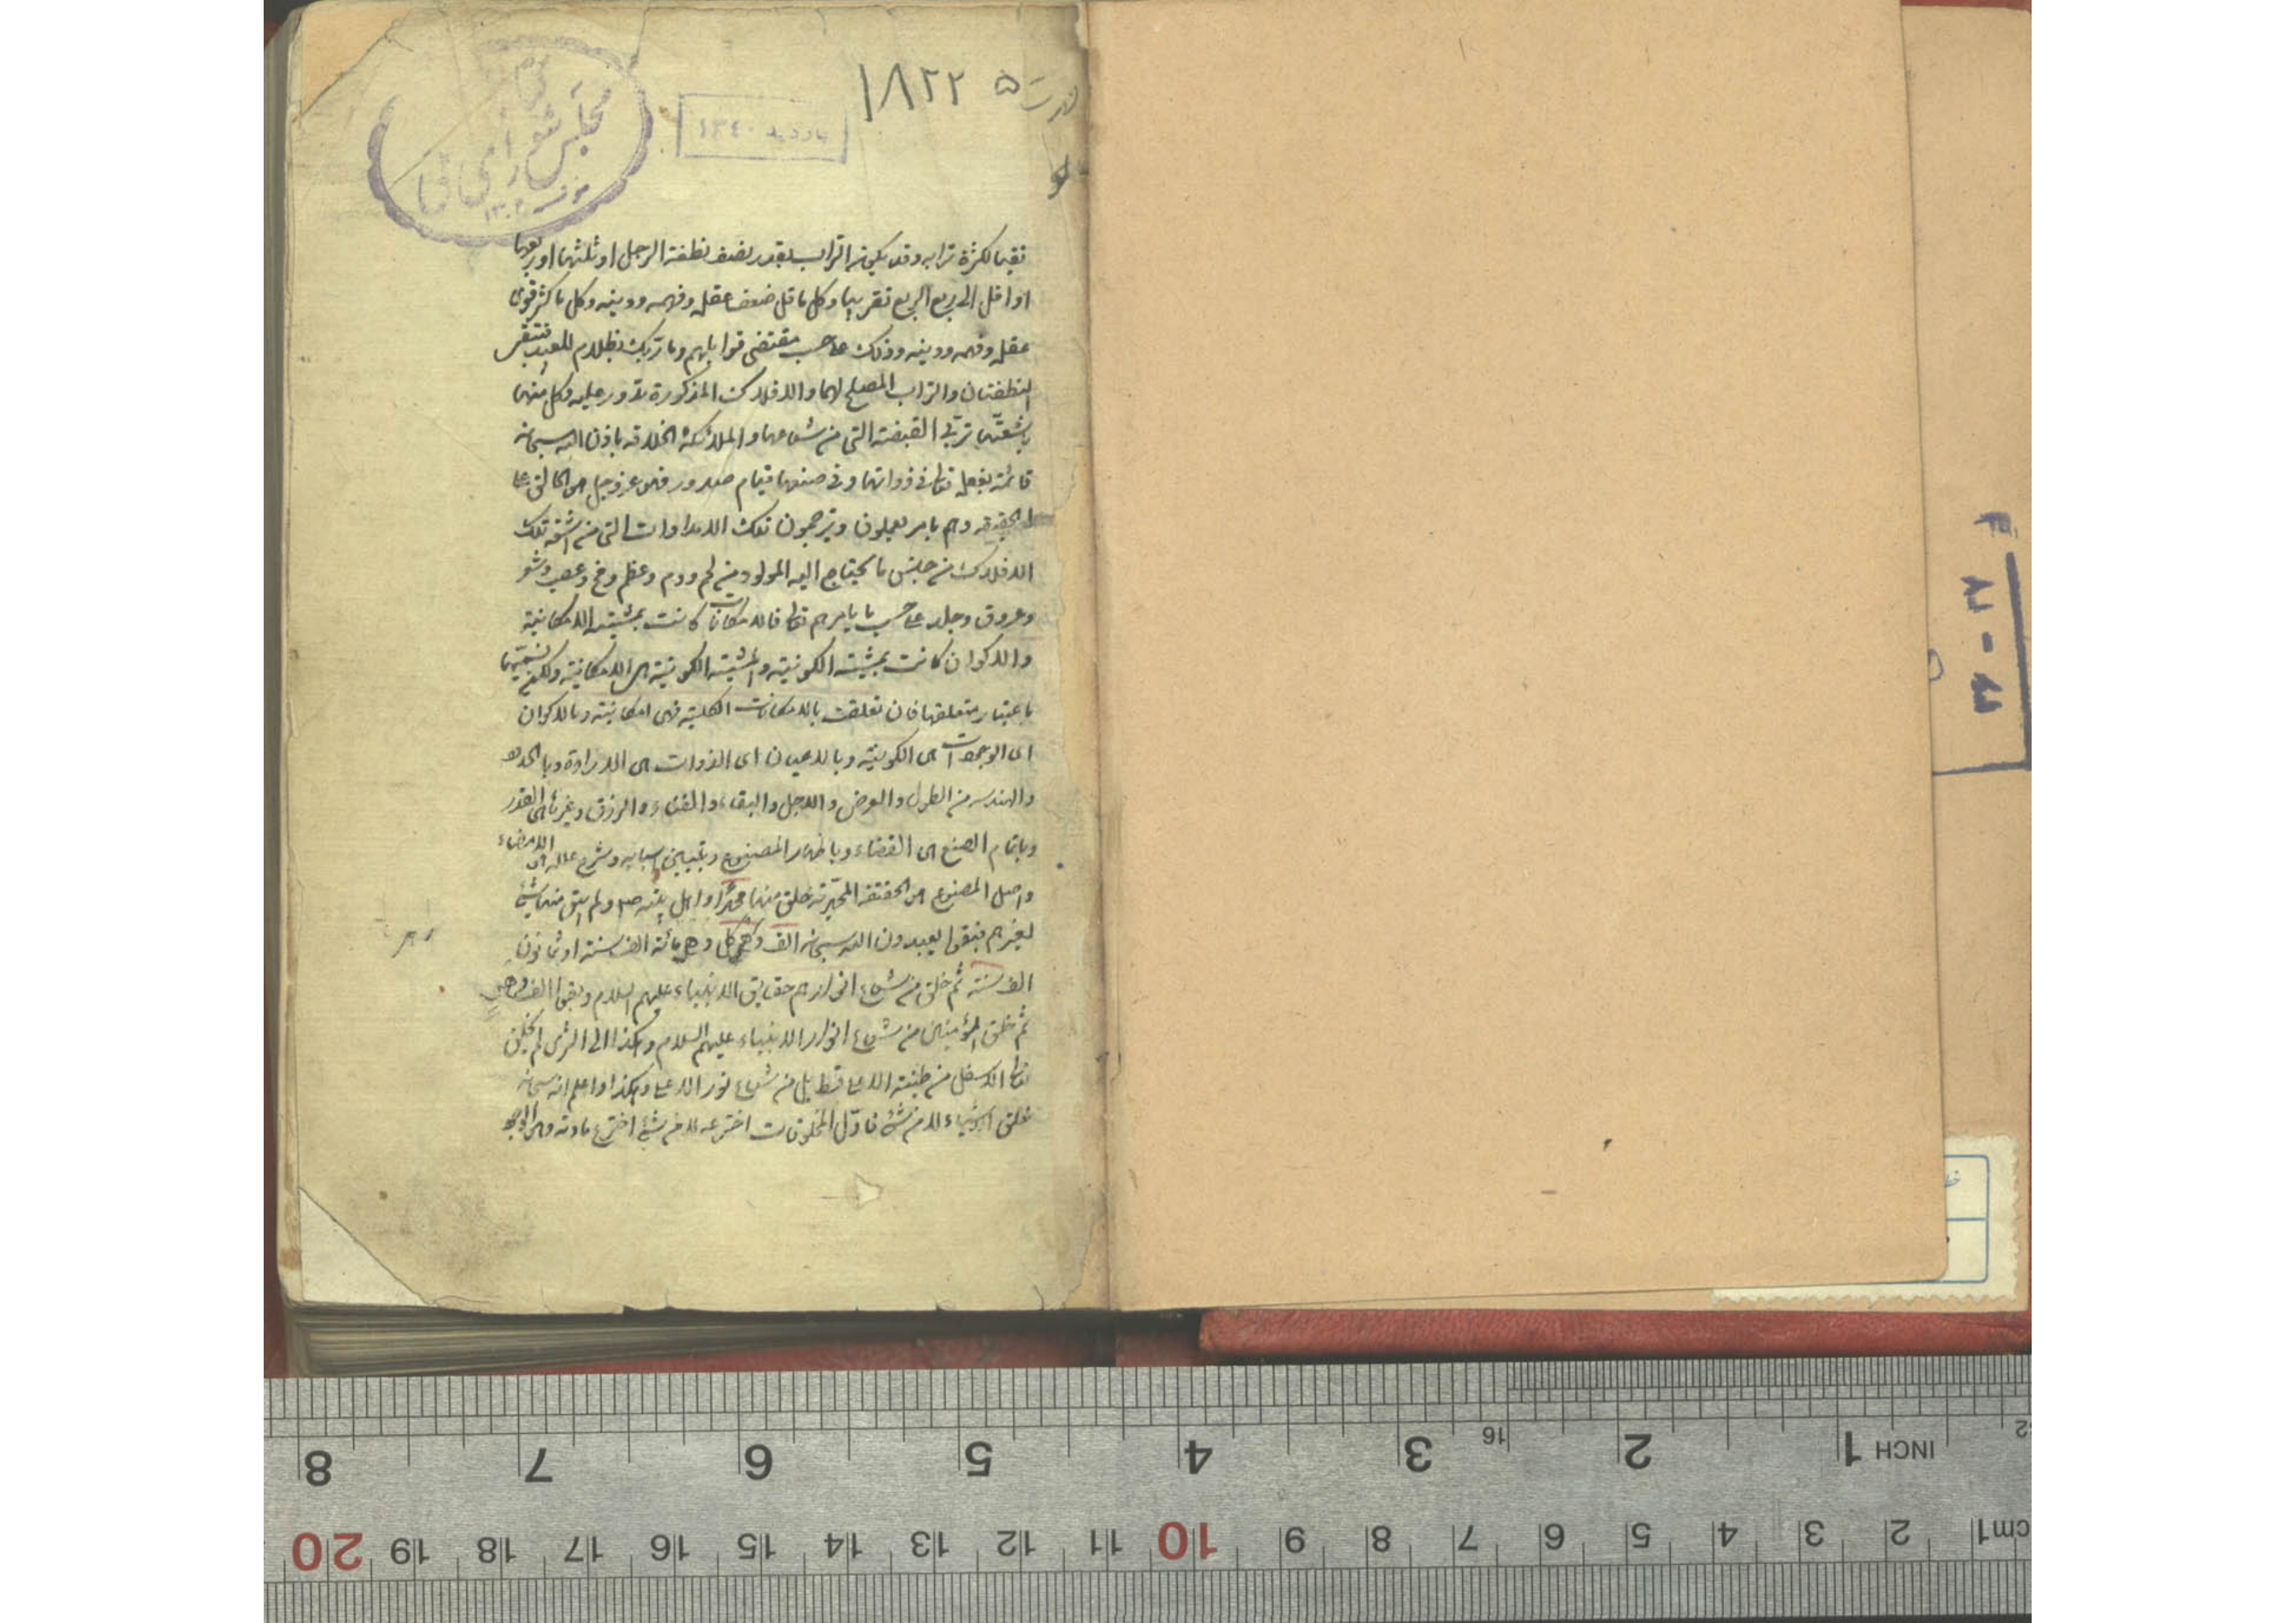 ۱۸۲۲۵
بازدید ۱۳۴۰
مجلس شورای ملی
۱۳۰۲
لكثرة ترابه وقد يكون التراب بقدر نصف نطفة الرجل او ثلثها او ربعها
او اقل الى ربع الربع تقريبا وكل ما قل ضعف عقله وفهمه ودينه وكل ما كثر قوى
عقله وفهمه ودينه وذلك على حسب مقتضى قوابلهم وما ربك بظلام للعبيد
النطفتان والتراب المصلح لهما والافلاك المذكورة تدور عليه وكل منها
باشعتها تربى القبضة التى من شعاعها والملائكة الخلاقة باذن الله سبحانه
قائمة بفعله تعالى فى ذواتها وفى صنعها قيام صدور فهو عز وجل هو الخالق على
الحقيقة وهم بامره يعملون ويترجمون تلك الامدادات التى من اشعة تلك
الافلاك من جنس ما يحتاج اليه المولود من لحم ودم وعظم ومخ وعصب وشعر
وعروق وجلد على حسب ما يامرهم تعالى فالامكانات كانت بمشيته الامكانية
والاكوان كانت بمشيته الكونية والمشية الكونية هى الامكانية ولكن تسميتها
باعتبار متعلقها فان تعلقت بالامكانات الكلية فهى امكانية وبالاكوان
اى الوجودات هى الكونية وبالاعيان اى الذوات هى الارادة وبالحدود
والهندسه من الطول والعرض والاجل والبقاء والفناء والرزق وغيرها هى القدر
وباتمام الصنع هى القضاء وباظهار المصنوع وتبيين اسبابه وشرح علله هى الامضاء
واصل المصنوع هو الحقيقة المحمدية خلق منها محمدا واهل بيته ص ولم يبق منها شئ
لغيرهم فبقوا يعبدون الله سبحانه الف دهر كل دهر مائة الف سنة او ثمانون
الف سنة ثم خلق من شعاع انوارهم حقايق الانبياء عليهم السلام وبقوا الف دهر
ثم خلق المؤمنين من شعاع انوار الانبياء عليهم السلام وهكذا الى الثرى لم يخلق
تعالى الاسفل من طينة الاعلى قط بل من شعاع نور الاعلى وهكذا واعلم انه سبحانه
خلق الاشياء لا من شئ فاول المخلوقات اخترعه لا من شئ اخترع مادته وهى الوجود
۲۷ - ۳۴
8 7 6 5 4 3 16 2 1 INCH
20 19 18 17 16 15 14 13 12 11 10 9 8 7 6 5 4 3 2 1 cm